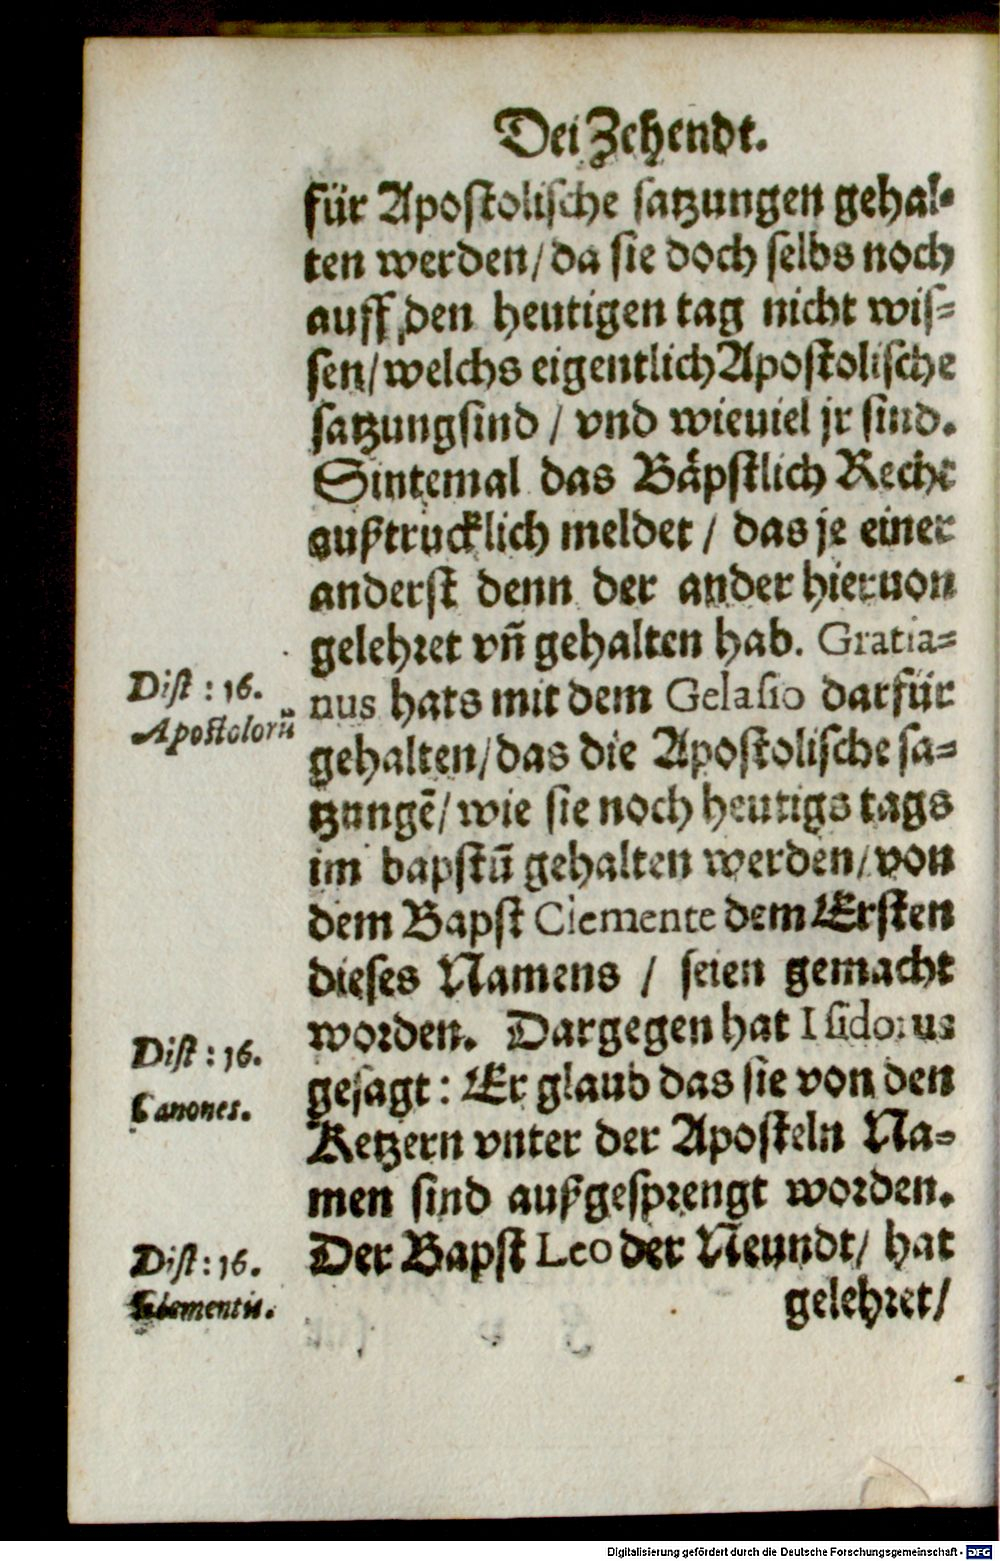 Dei Zehendt.
für Apostolische satzungen gehal-
ten werden/da sie doch selbs noch
auff den heutigen tag nicht wis-
sen/welchs eigentlich Apostolische
satzung sind / vnd wieuiel jr sind.
Sintemal das Bäpstlich Recht
außtrucklich meldet / das je einer
anderst denn der ander hieruon
gelehret vñ gehalten hab. Gratia-
Dist : 16.
nus hats mit dem Gelasio darfür
Apostolorū
gehalten/das die Apostolische sa-
tzungē/wie sie noch heutigs tags
im bapstū gehalten werden/von
dem Bapst Clemente dem Ersten
dieses Namens / seien gemacht
worden. Dargegen hat Isidorus
Dist : 16.
gesagt: Er glaub das sie von den
Canones.
Ketzern vnter der Aposteln Na-
men sind außgesprengt worden.
Der Bapst Leo der Neundt/ hat
Dist : 16.
Clementis.
gelehret/
Digitalisierung gefördert durch die Deutsche Forschungsgemeinschaft - DFG